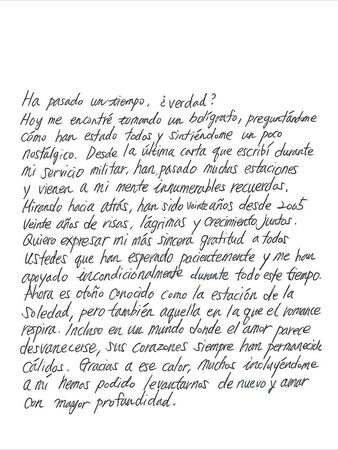 Ha pasado un tiempo, ¿verdad?
Hoy me encontré tomando un bolígrafo, preguntándome
cómo han estado todos y sintiéndome un poco
nostálgico. Desde la última carta que escribí durante
mi servicio militar, han pasado muchas estaciones
y vienen a mi mente innumerables recuerdos.
Mirando hacia atrás, han sido veinte años desde 2005
veinte años de risas, lágrimas y crecimiento juntos.
Quiero expresar mi más sincera gratitud a todos
ustedes que han esperado pacientemente y me han
apoyado incondicionalmente durante todo este tiempo.
Ahora es otoño conocido como la estación de la
soledad, pero también aquella en la que el romance
respira. Incluso en un mundo donde el amor parece
desvanecerse, sus corazones siempre han permanecido
cálidos. Gracias a ese calor, muchos incluyéndome
a mí hemos podido levantarnos de nuevo y amar
con mayor profundidad.